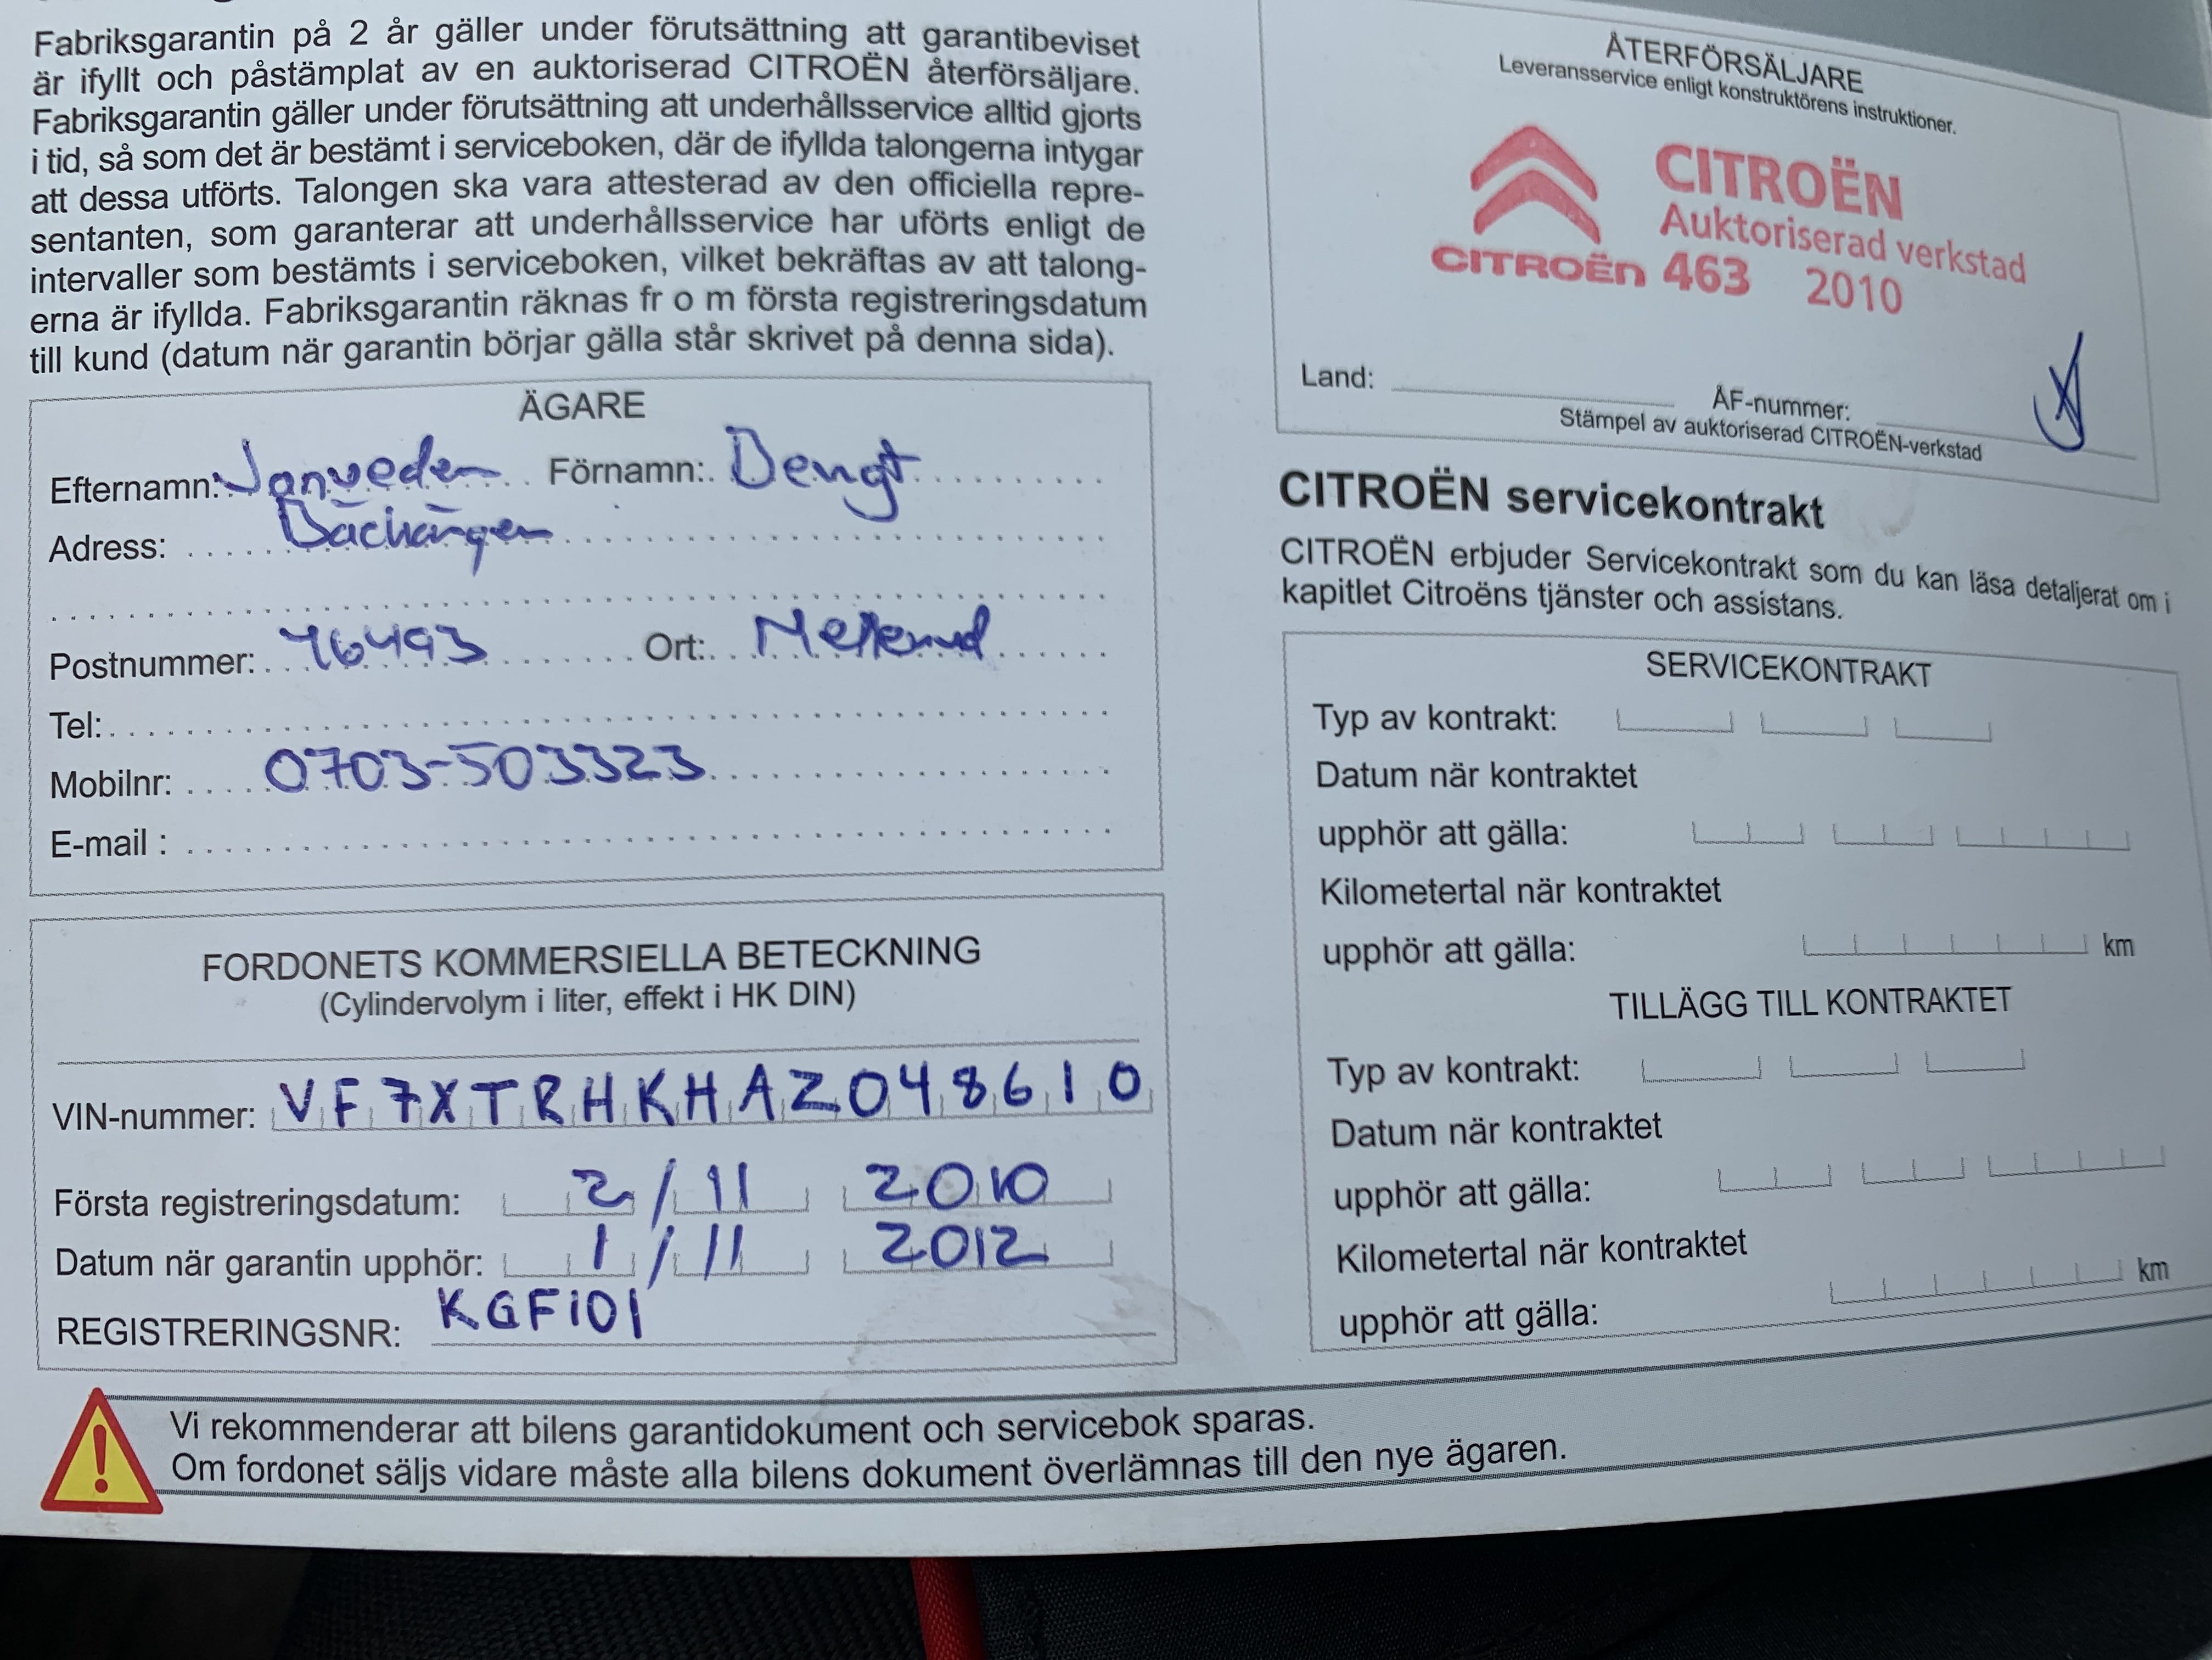 Fabriksgarantin på 2 år gäller under förutsättning att garantibeviset
är ifyllt och påstämplat av en auktoriserad CITROËN återförsäljare.
Fabriksgarantin gäller under förutsättning att underhållsservice alltid gjorts
i tid, så som det är bestämt i serviceboken, där de ifyllda talongerna intygar
att dessa utförts. Talongen ska vara attesterad av den officiella repre-
sentanten, som garanterar att underhållsservice har uförts enligt de
intervaller som bestämts i serviceboken, vilket bekräftas av att talong-
erna är ifyllda. Fabriksgarantin räknas fr o m första registreringsdatum
till kund (datum när garantin börjar gälla står skrivet på denna sida).
ÄGARE
Efternamn: Förnamn: Bengt
Adress:
Postnummer: 46493 Ort: Mellerud
Tel:
Mobilnr: 0703-503323
E-mail :
FORDONETS KOMMERSIELLA BETECKNING
(Cylindervolym i liter, effekt i HK DIN)
VIN-nummer: VF7XTRHKHAZ048610
Första registreringsdatum: 2/11 2010
Datum när garantin upphör: 1/11 2012
REGISTRERINGSNR: KGF101
ÅTERFÖRSÄLJARE
Leveransservice enligt konstruktörens instruktioner.
CITROËN
Auktoriserad verkstad
CITROËN 463 2010
Land: ÅF-nummer:
Stämpel av auktoriserad CITROËN-verkstad
CITROËN servicekontrakt
CITROËN erbjuder Servicekontrakt som du kan läsa detaljerat om i
kapitlet Citroëns tjänster och assistans.
SERVICEKONTRAKT
Typ av kontrakt:
Datum när kontraktet
upphör att gälla:
Kilometertal när kontraktet
upphör att gälla: km
TILLÄGG TILL KONTRAKTET
Typ av kontrakt:
Datum när kontraktet
upphör att gälla:
Kilometertal när kontraktet
upphör att gälla: km
Vi rekommenderar att bilens garantidokument och servicebok sparas.
Om fordonet säljs vidare måste alla bilens dokument överlämnas till den nye ägaren.